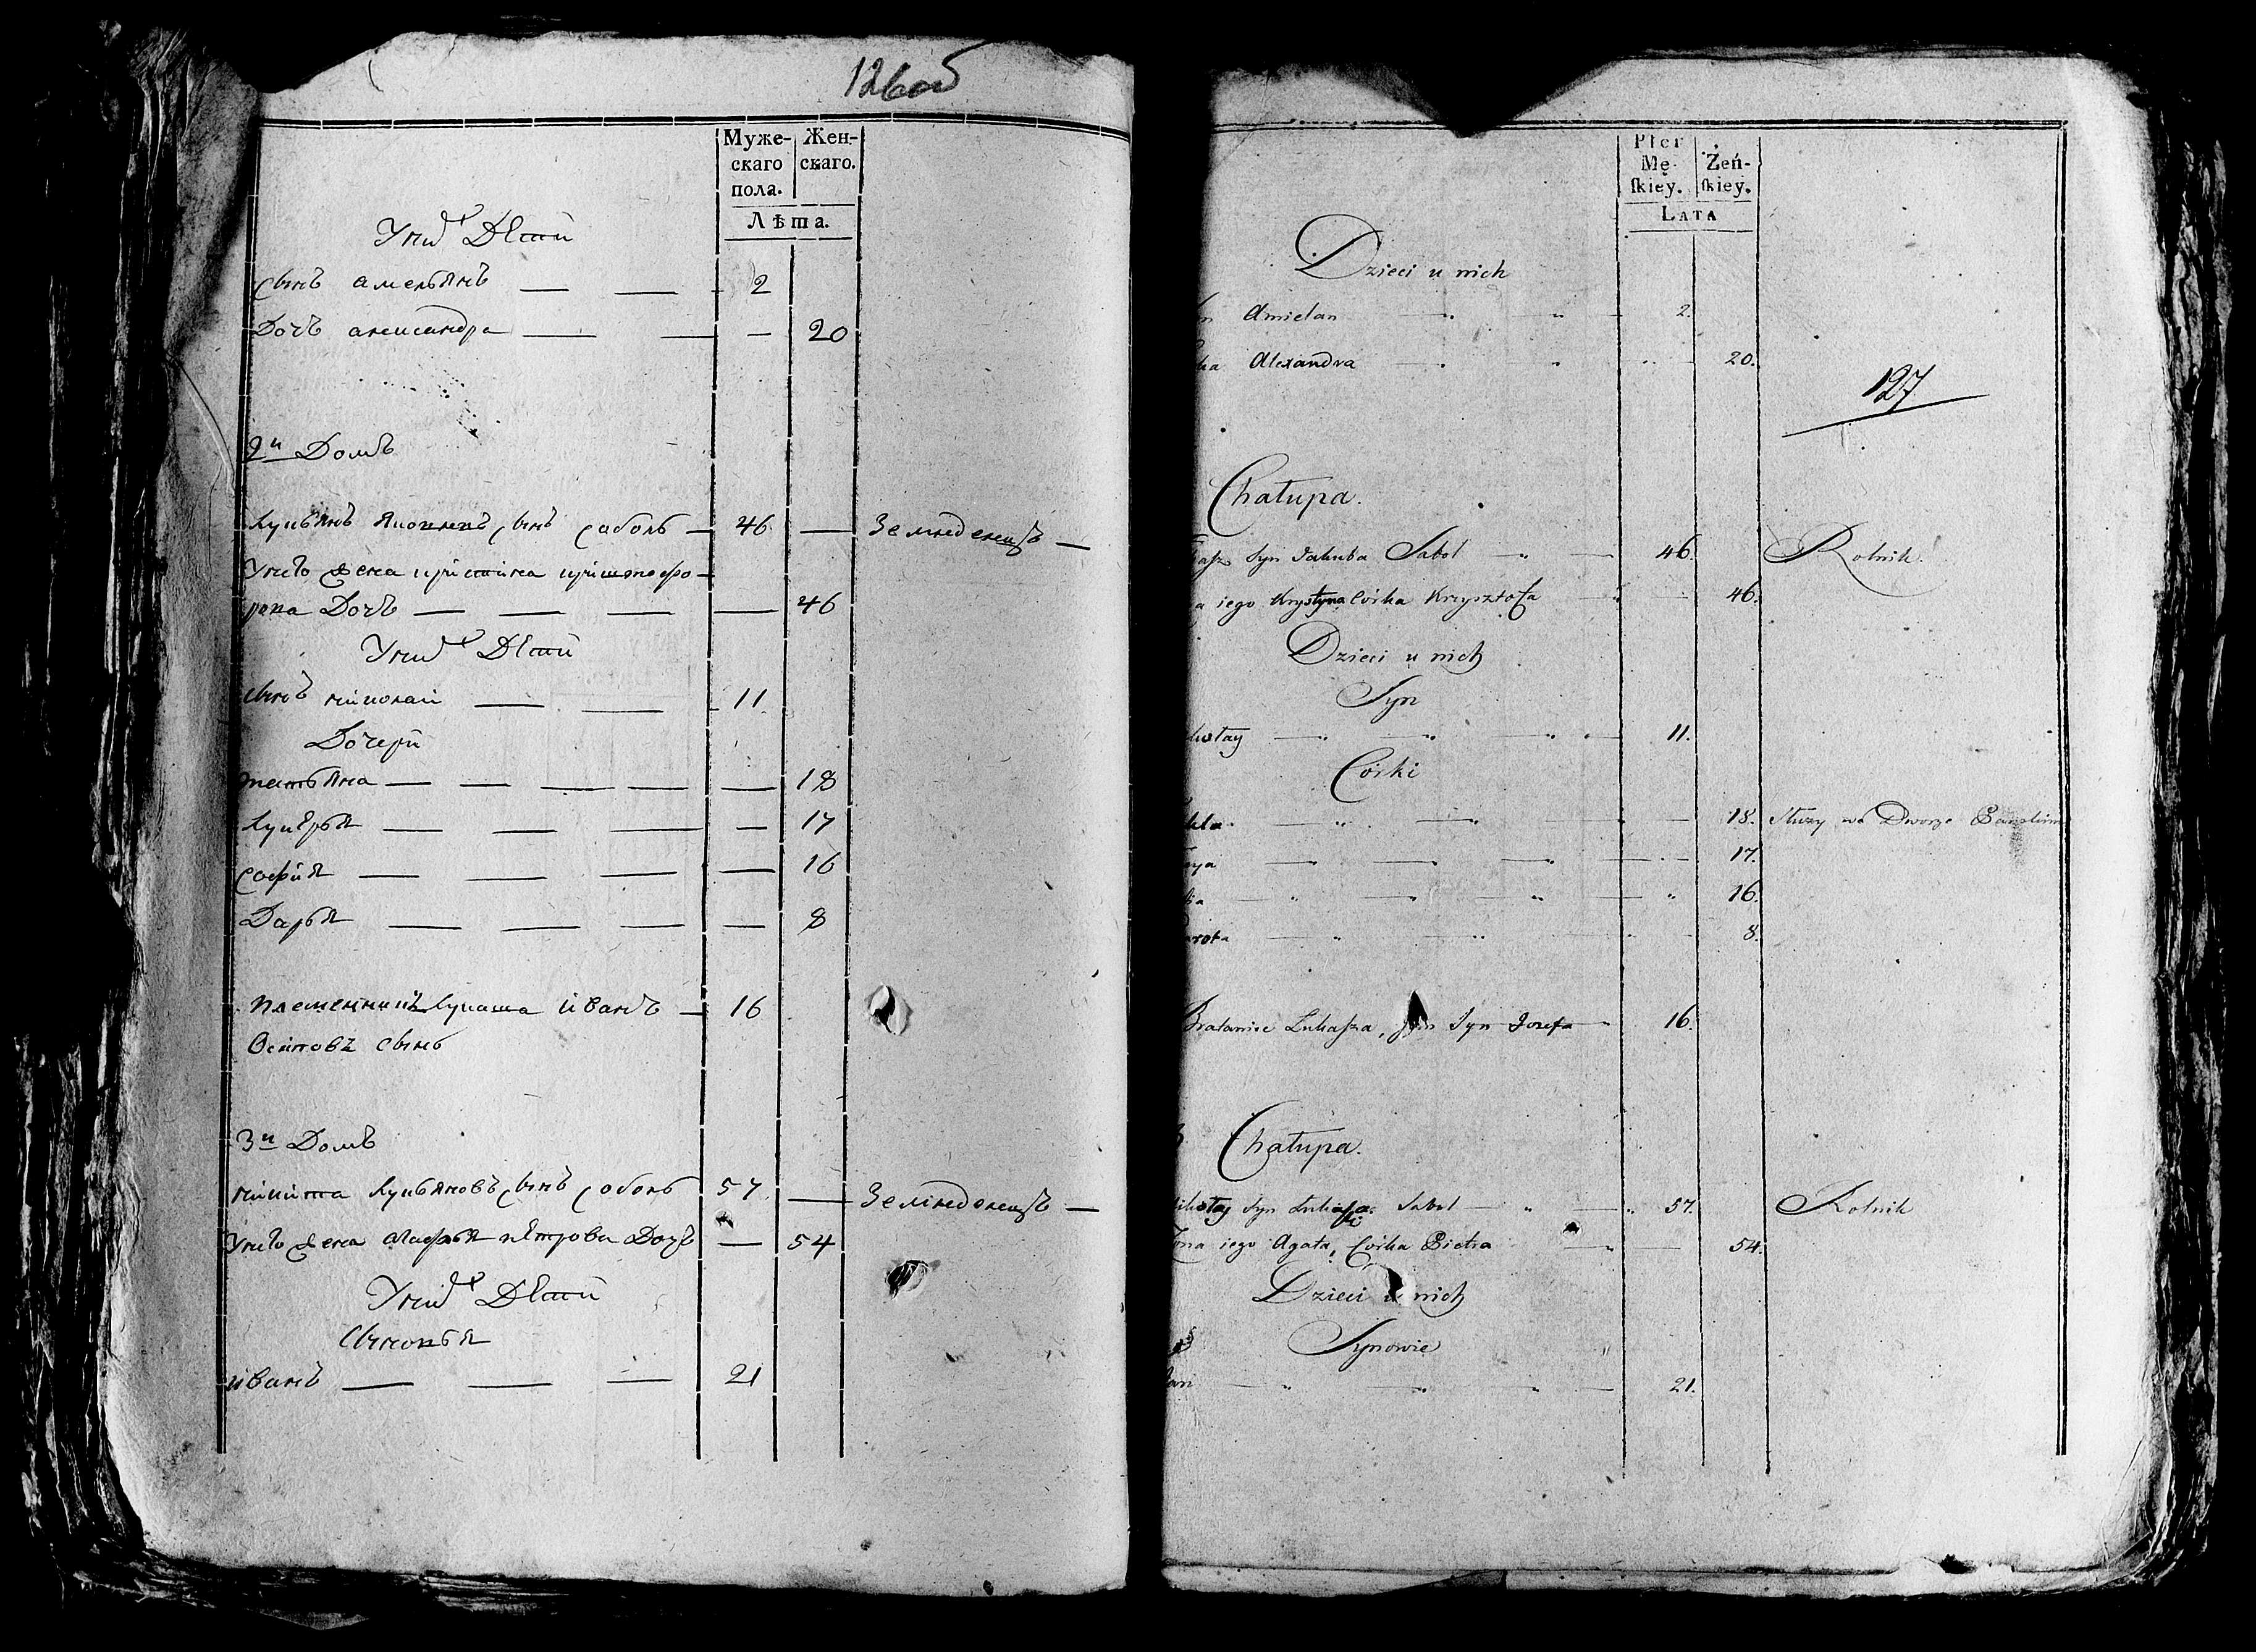 126об
Муже- Жен-
скаго скаго.
пола.
Лѣта.
У них Дети
сынъ амельянъ — — 2
Дочъ александра — — — 20
2й Домъ
Лукьянъ сынъ саболь — 46 —Земледелецъ —
У него жена кристина кристофо-
рова Дочъ — — — — 46
У них Дети
сынъ николай — — 11
Дочери
татьяна — — — — — 18
Лукерья — — — — 17
софия — — — — 16
Дарья — — — — 8
племенникъ Лукаша иванъ — 16
Осиповъ сынъ
3й Домъ
никита Лукьяновъ сынъ соболь 57 — Земледелецъ —
У него жена агафья петрова Дочъ — 54
У них Дети
сыновья
иванъ — — — 21
Płci
Mę- Żeń-
ſkiey. ſkiey.
LATA
Dzieci u nich
Amielan — — 2.
Alexandra — — 20.
127
Chałupa.
Syn Jakuba Sabol — — 46. Rolnik.
iego Krystyna Córka Krzysztofa — 46.
Dzieci u nich
Syn
11.
Córki
18. Służy we Dworze Panskim
17.
16.
8.
Bratanic Łukaſza, Syn Jozefa — 16.
Chałupa.
Syn Łukaſza Sabol — — 57. Rolnik
Zona iego Agata, Córka Pietra — — 54.
Dzieci u nich
Synowie
Jan — — — 21.